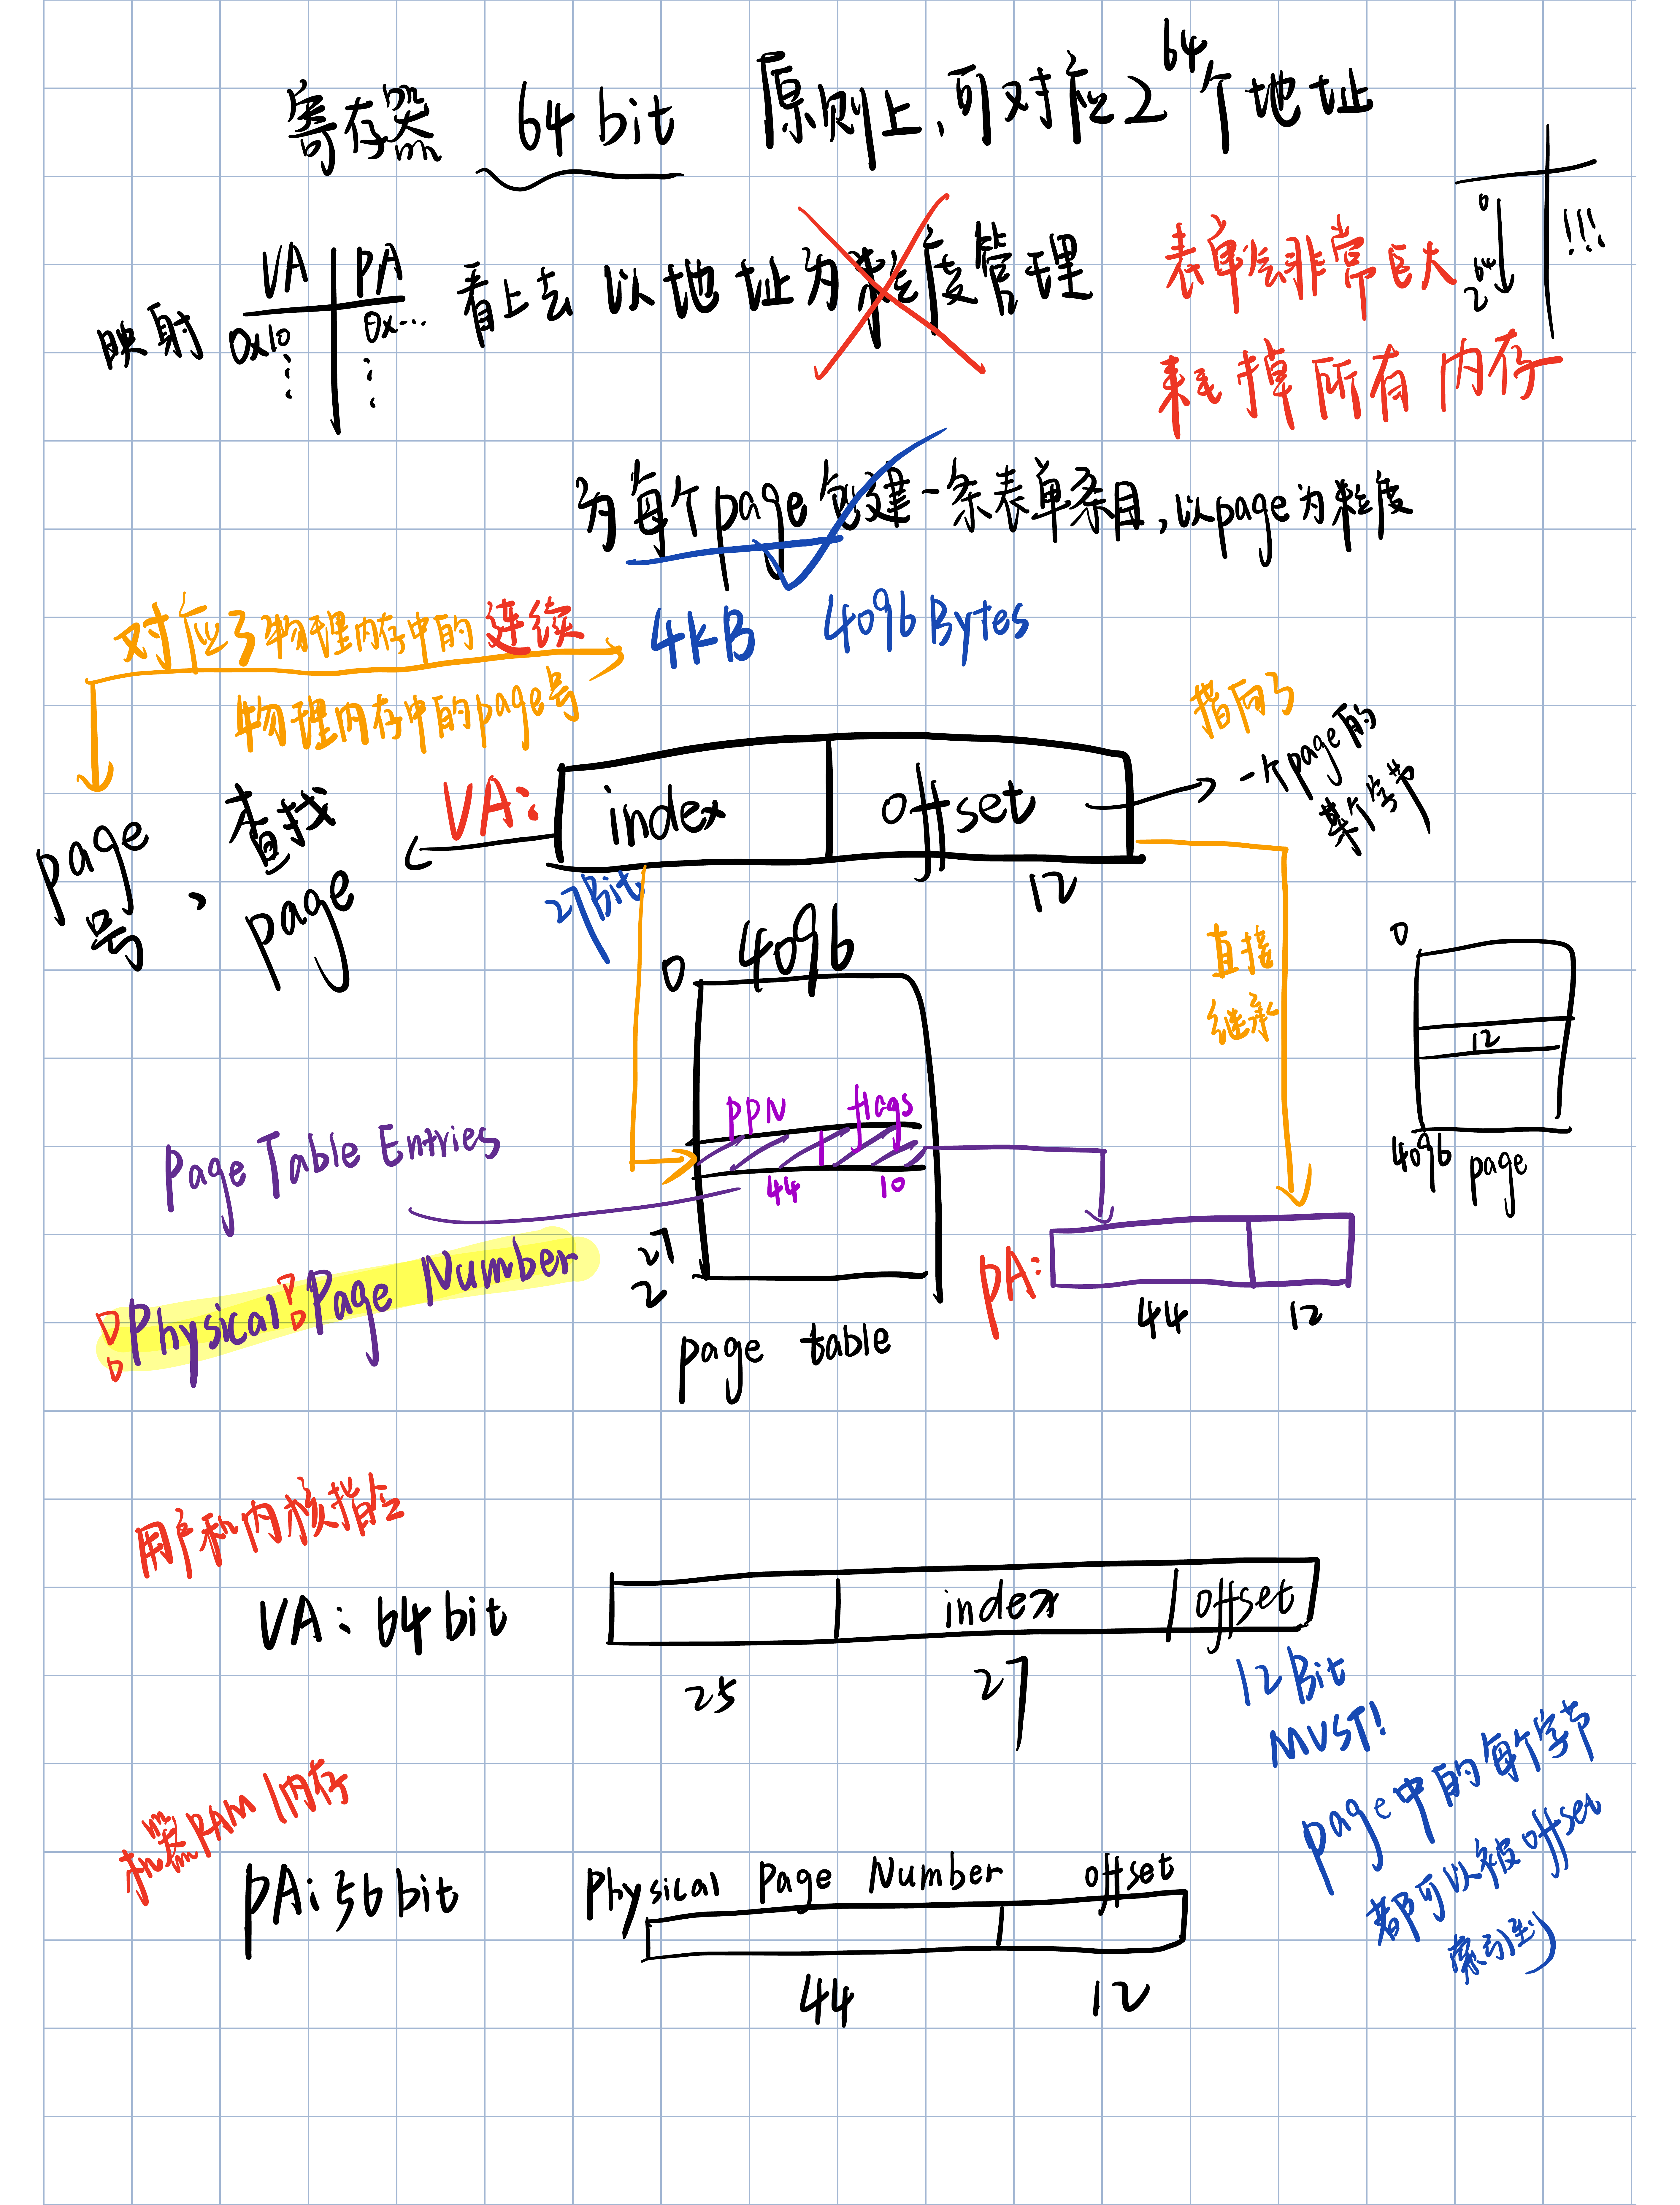 寄存器 64 bit 原则上,可对应2^64个地址
映射 VA PA
0x10 0x...
看上去 以地址为粒度管理
表单会非常巨大
耗掉所有内存
0
2^64
!!!
为每个page创建一条表单条目,以page为粒度
4KB 4096 Bytes
对应了物理内存中的连续
物理内存中的page号
page号、查找page
VA: index offset
27Bit
12
指向了
一个page的
某个字节
直接
继承
0
12
4096
page
4096
0
PPN flags
44 10
2^27
page table
Page Table Entries
Physical Page Number
PA:
44 12
用户和内核指令
VA: 64 bit
index offset
25 27
12 Bit
MUST!
page中的每个字节
都可以被offset
索引到
机器RAM 内存
PA: 56 bit
Physical Page Number offset
44 12